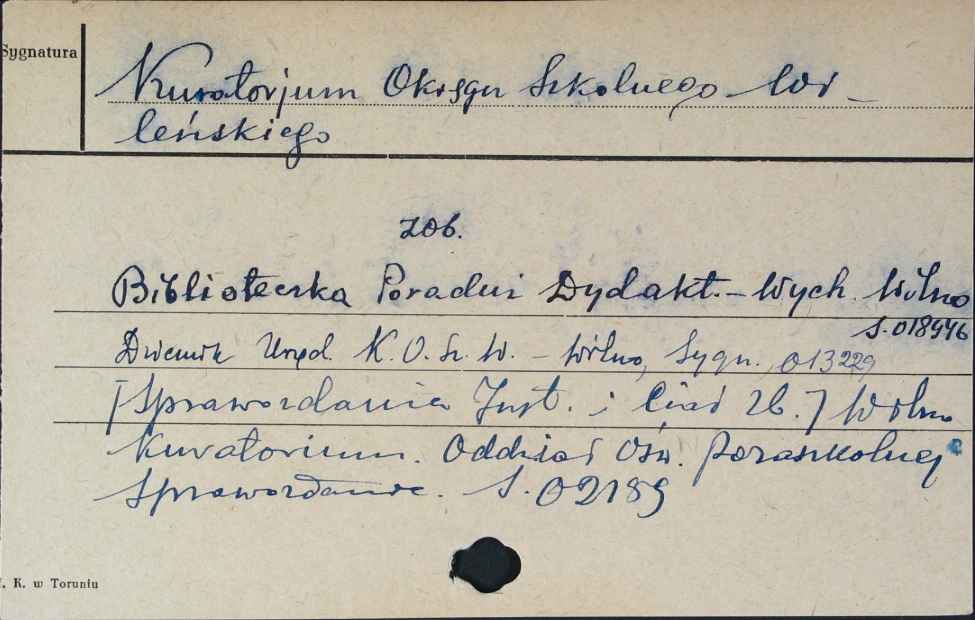 Sygnatura
Kuratorjum Okręgu Szkolnego Wi-
leńskiego
zob.
Biblioteczka Poradni Dydakt.-Wych. Wilno
S. 018946
Dziennik Urzęd. K. O. Sz. W. - Wilno, Sygn. 013229
[Sprawozdania Inst. i Ciał Zb.] Wilno
Kuratorium. Oddział Ośw. Pozaszkolnej
Sprawozdanie. S. 02189
. K. w Toruniu